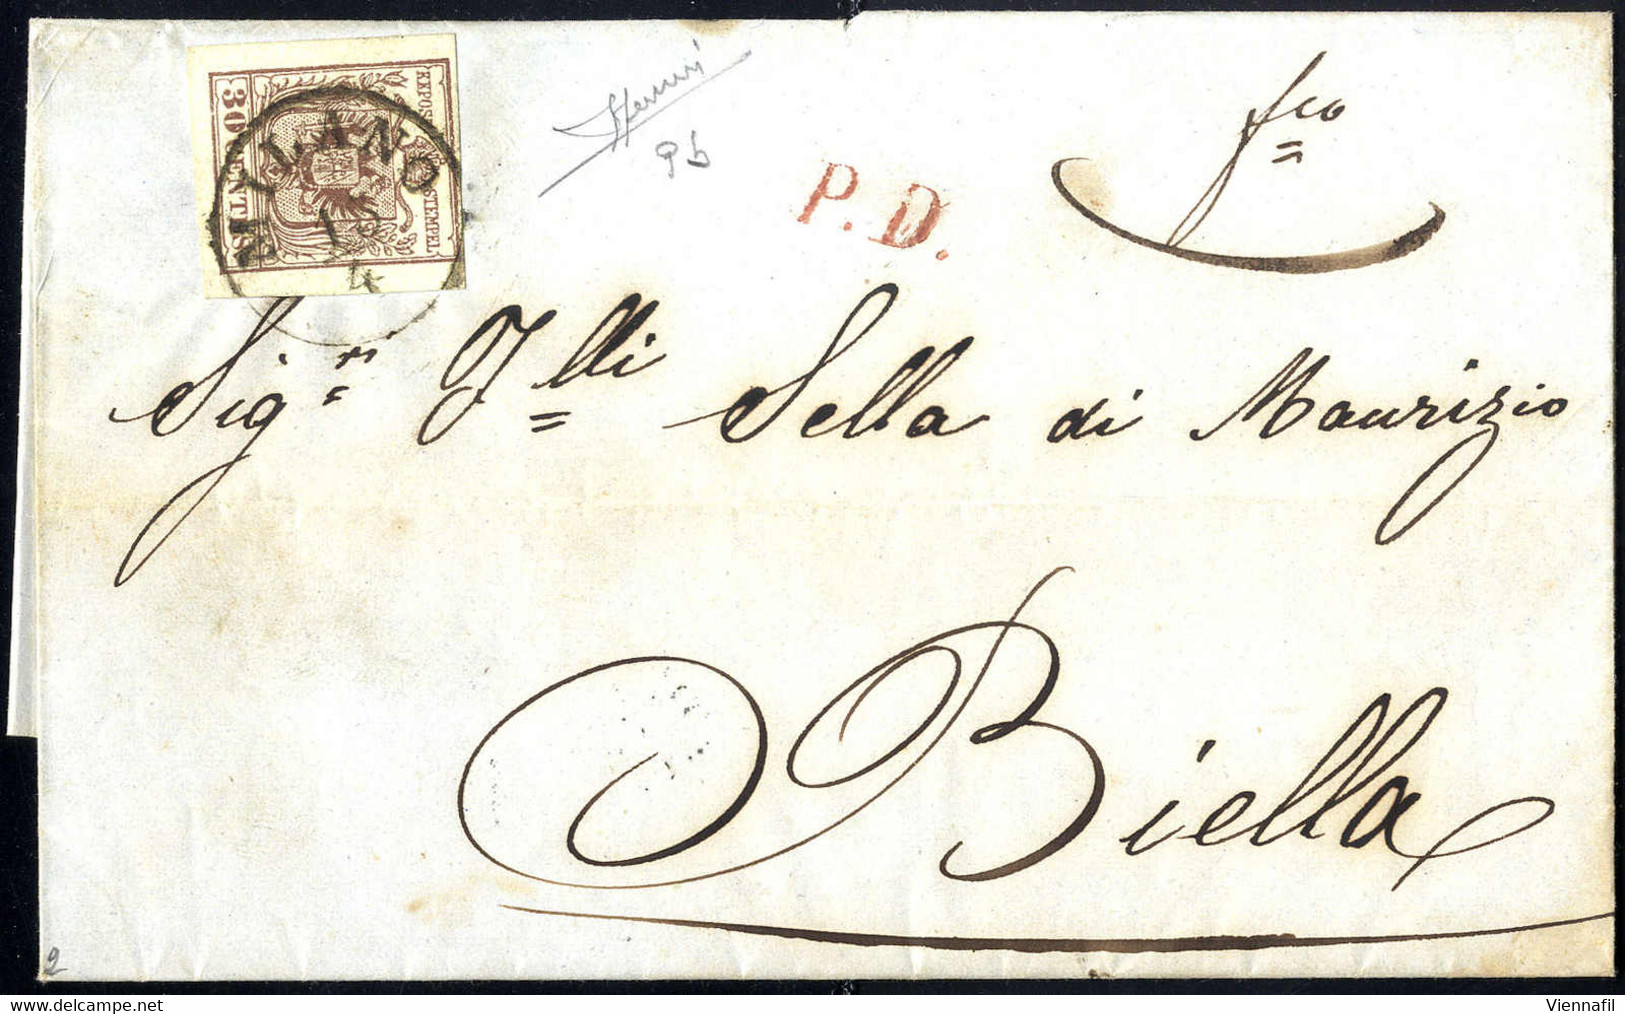 30 CENTES
KKPOST-STEMPEL
MILANO
15
4
9 b
P. D.
fco
Sigri Flli Sella di Maurizio
Biella
2
www.delcampe.net
Viennafil